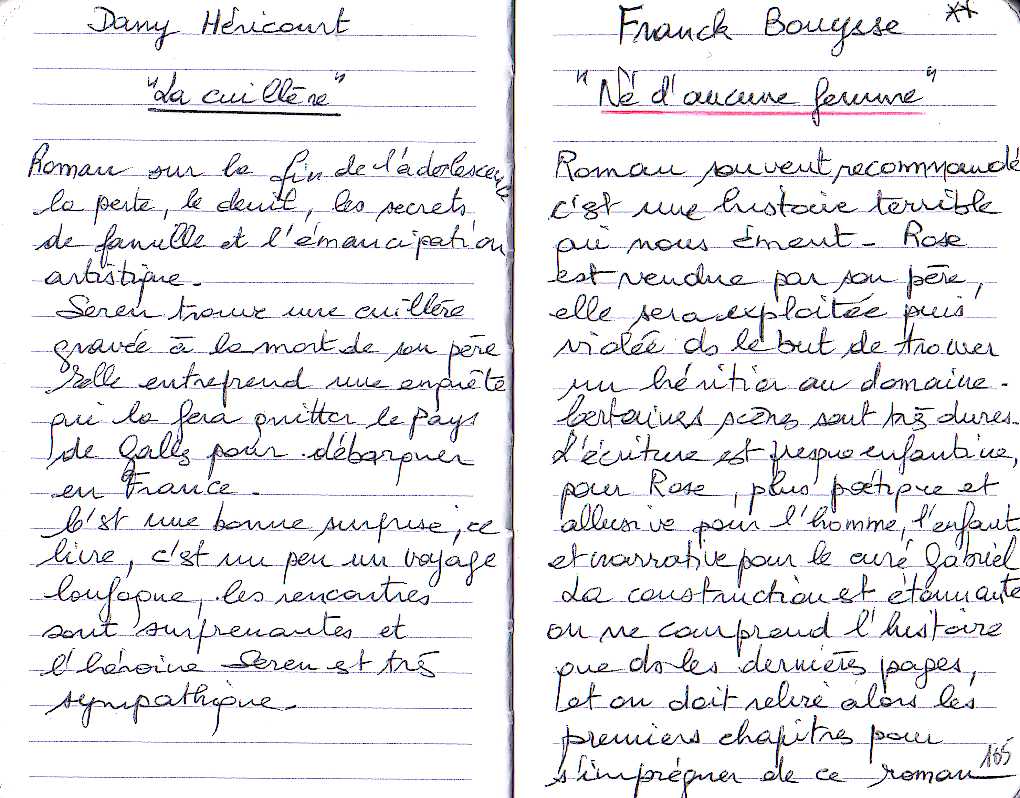 Dany Héricourt
"La cuillère"
Roman sur la fin de l'adolescence
la perte, le deuil, les secrets
de famille et l'émancipation
artistique.
Seren trouve une cuillère
gravée à la mort de son père
elle entreprend une enquête
qui la fera quitter le Pays
de Galles pour débarquer
en France.
C'est une bonne surprise, ce
livre, c'est un peu un voyage
loufoque, les rencontres
sont surprenantes et
l'héroïne Seren est très
sympathique.
Franck Bouysse **
"Né d'aucune femme"
Roman souvent recommandé
c'est une histoire terrible
qui nous émeut - Rose
est vendue par son père,
elle sera exploitée puis
violée ds le but de trouver
un héritier au domaine.
Certaines scènes sont très dures.
L'écriture est presque enfantine,
pour Rose, plus poétique et
allusive pour l'homme, l'enfant
et narrative pour le curé Gabriel
La construction est étonnante
on ne comprend l'histoire
que ds les dernières pages,
et on doit relire alors les
premiers chapitres pour
s'imprégner de ce roman
165